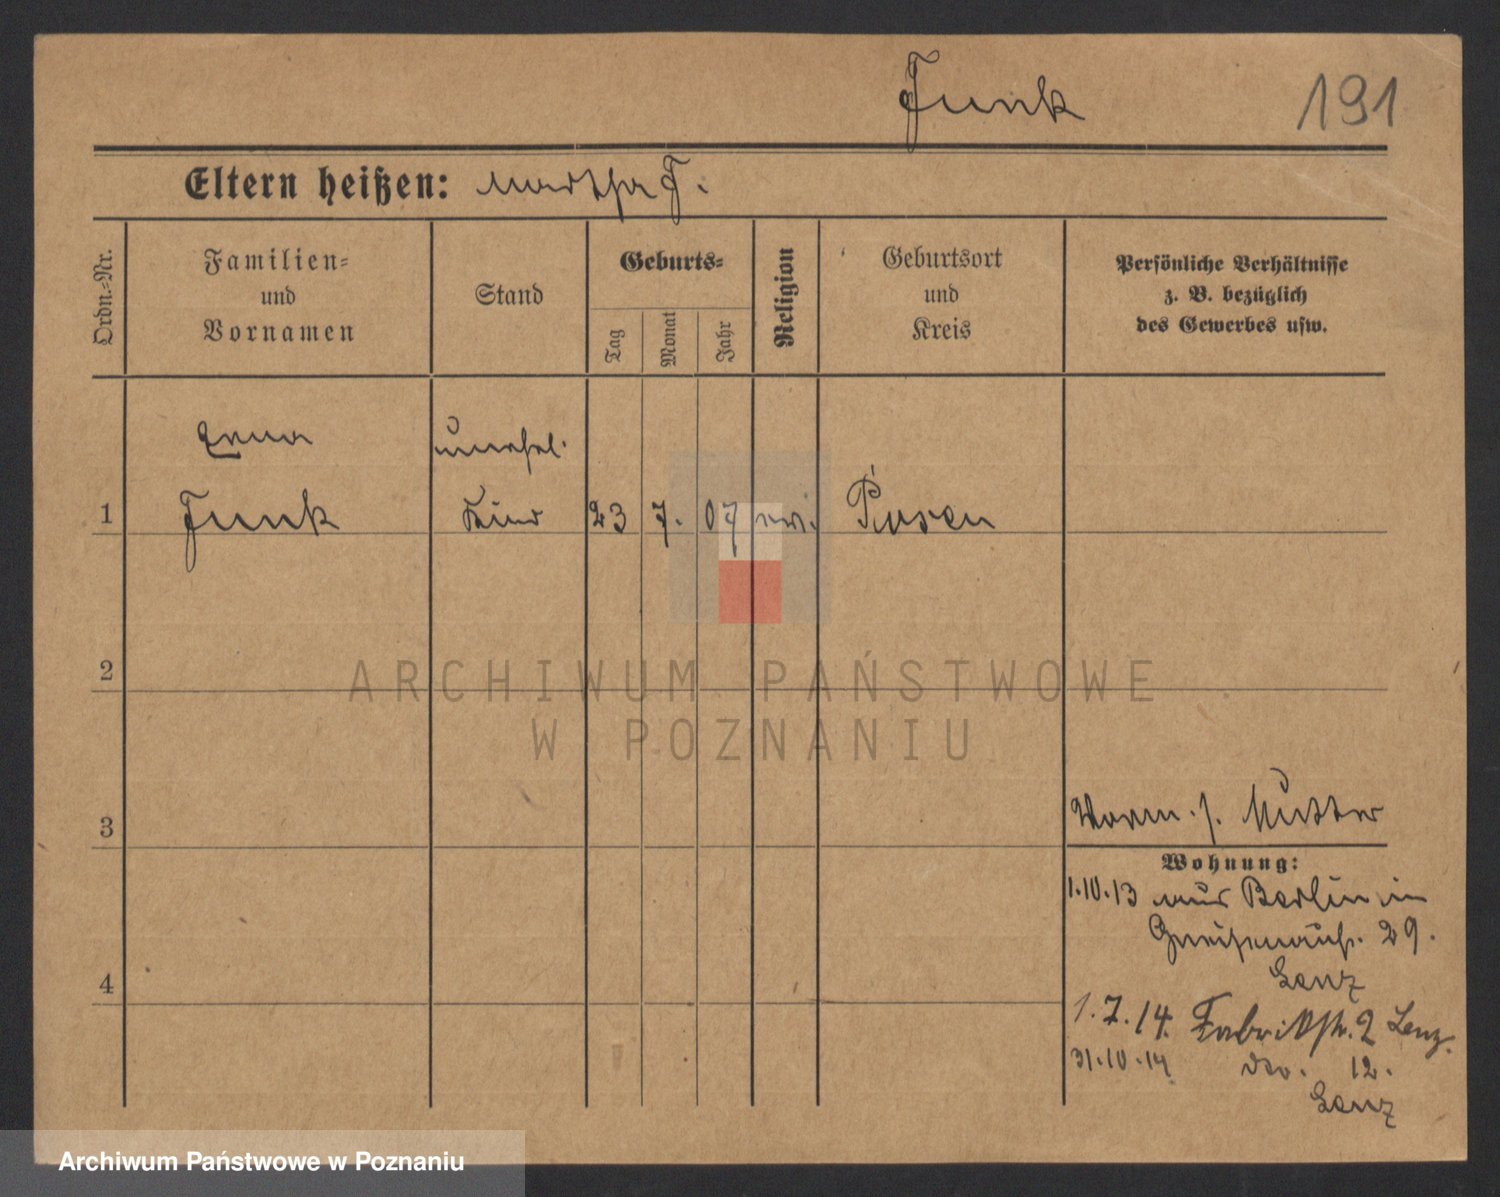 Funk
191
Eltern heißen: Martha F.
Ordn.-Nr.
Familien=
und
Vornamen
Stand
Geburts=
Tag
Monat
Jahr
Religion
Geburtsort
und
Kreis
Persönliche Verhältnisse
z. B. bezüglich
des Gewerbes usw.
Erna unehel.
1 Funk Kind 23 7. 07 ev. Posen
2
3
4
Vorm. s. Mutter
Wohnung:
1.10.13 aus Berlin in
Gneisenaustr. 29.
Lenz
1.7.14. Fabrikstr. 2 Lenz.
31.10.14 do. 12.
Lenz
ARCHIWUM PAŃSTWOWE
W POZNANIU
Archiwum Państwowe w Poznaniu